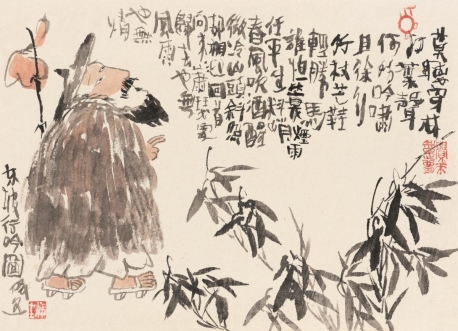 莫聽穿林
打葉聲
何妨吟嘯
且徐行
竹杖芒鞋
輕勝馬
誰怕一蓑煙雨
任平生料峭
春風吹酒醒
微冷山頭斜照
卻相迎回首
向來蕭瑟處
歸去也無
風雨
也無晴
東坡行吟圖